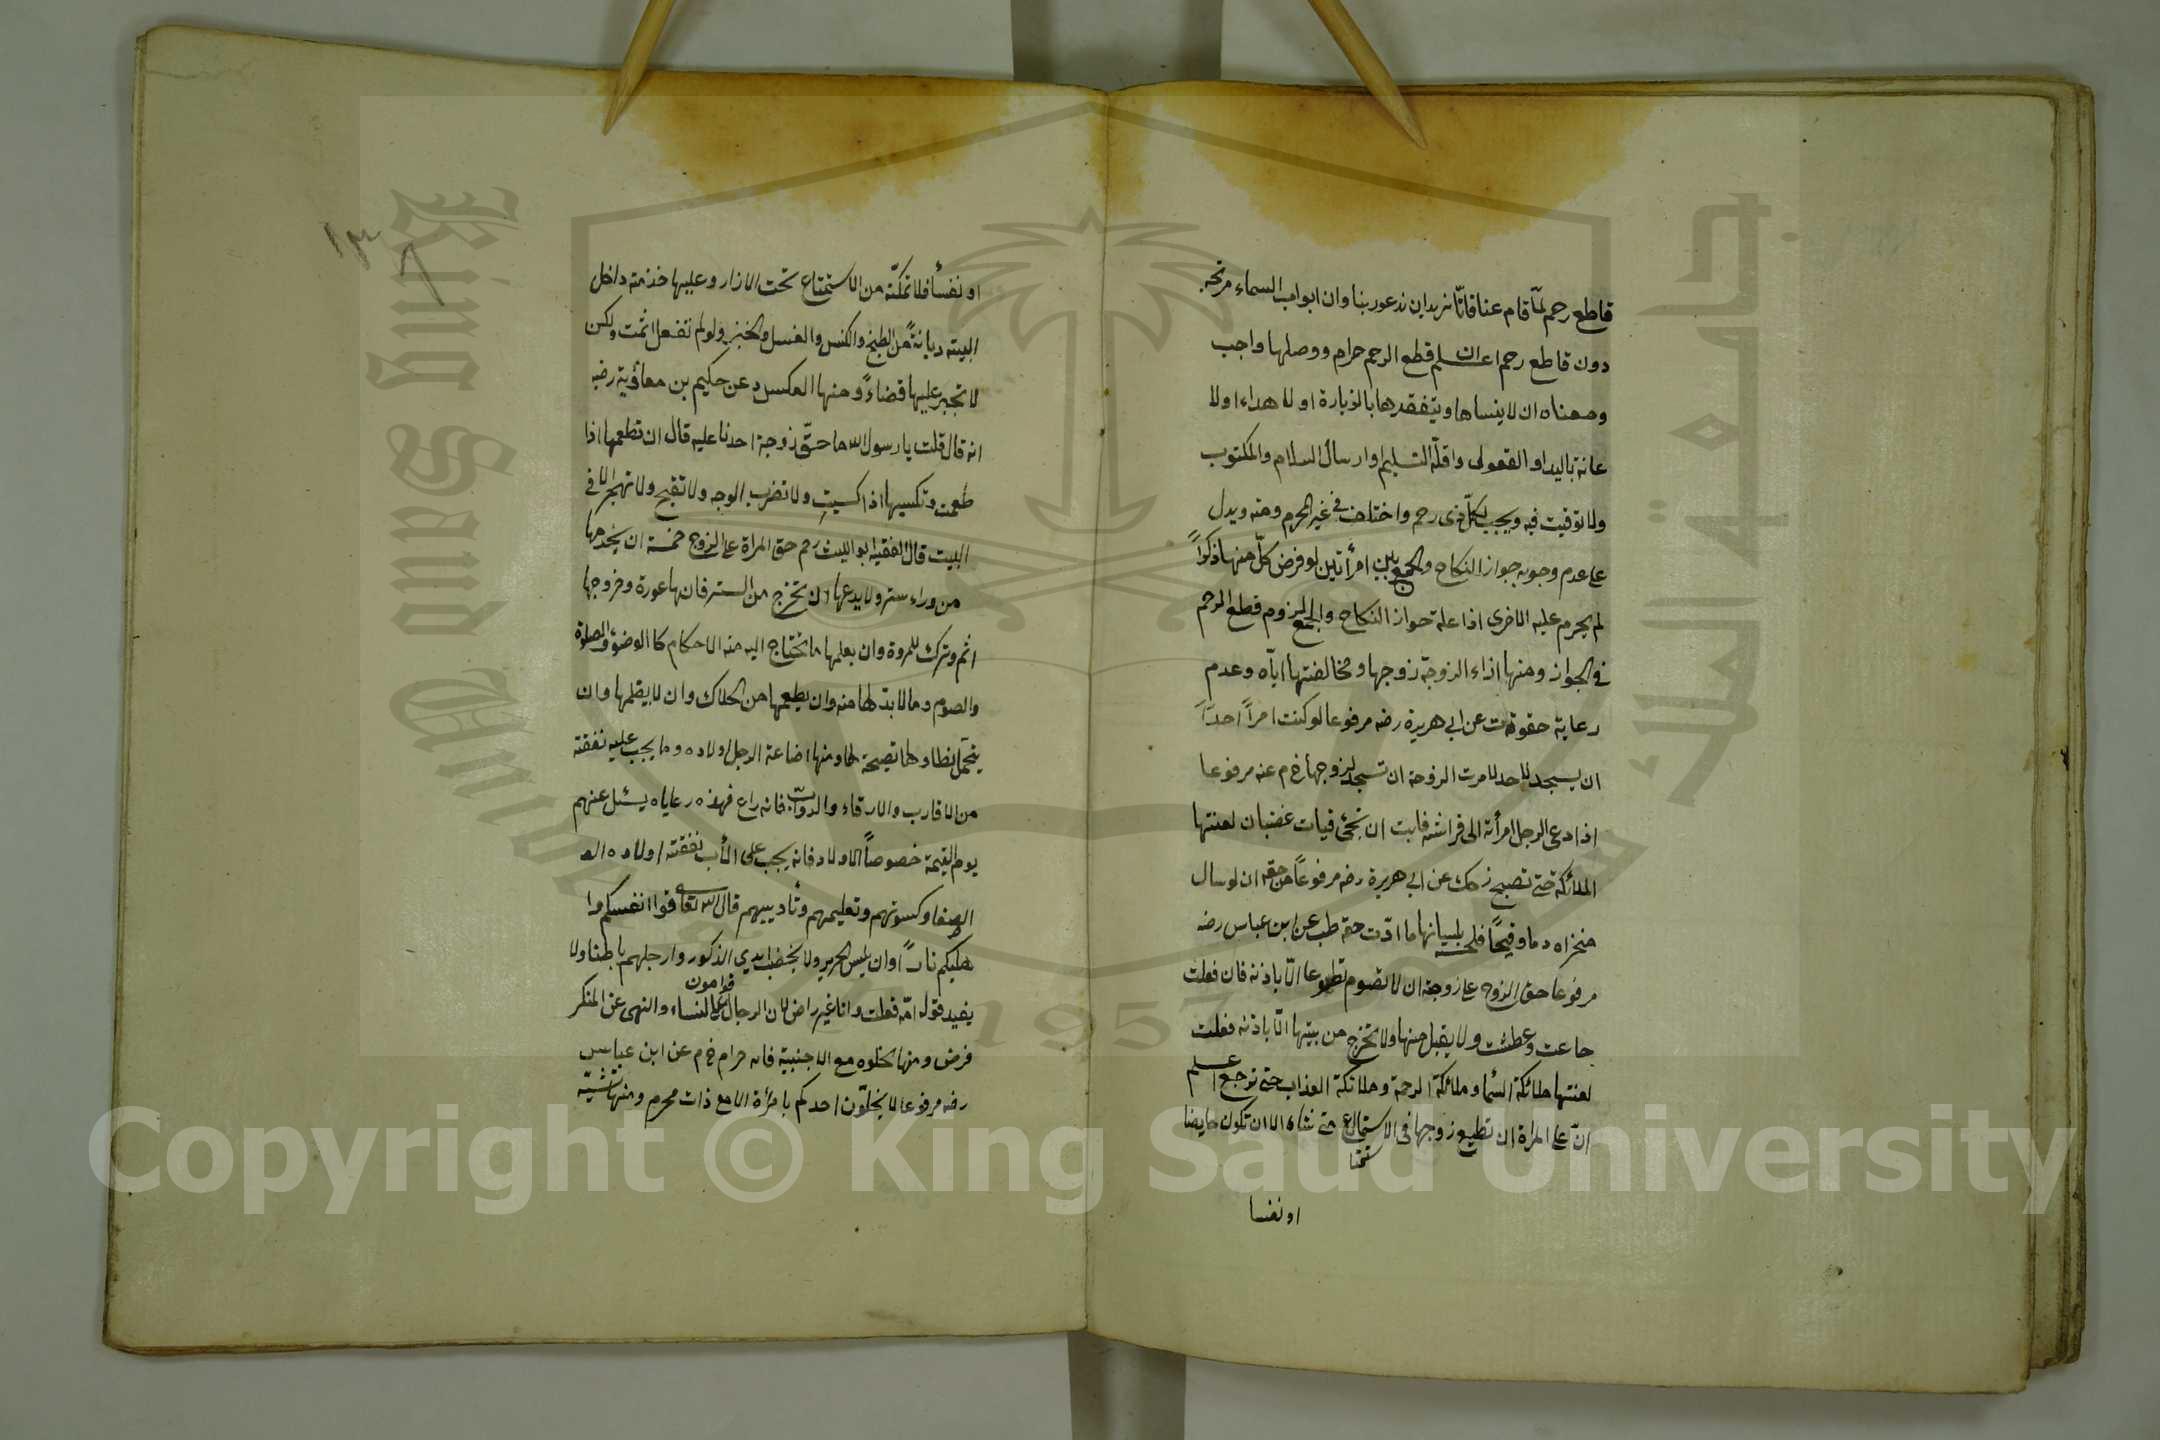 قاطع رحم لمّا قام عنا فانّا نريد ان ندعو ربنا وان ابواب السماء مرتجه
دون قاطع رحم اعلم ان قطع الرحم حرام ووصلها واجب
ومعناه ان لا ينساها ويتفقدها بالزيارة او لاهداء او لا
عانة باليد او القول واقلّه التسليم او ارسال السلام والمكتوب
ولا توقيت فيه ويجب لكلّ ذى رحم واختلف فى غير المحرم ومنه ويدل
على عدم وجوبه جواز النكاح والجمع بين امرأتين لو فرض كلّ منهما ذكراً
لم يحرم عليه الاخرى اذا علة جواز النكاح والجمع لزوم قطع الرحم
فى الجواز ومنها اذاء الزوجة زوجها ومخالفتها ايّاه وعدم
رعاية حقوقه ت عن ابى هريرة رضه مرفوعا لو كنت امراً احداً
ان يسجد لاحد لامرت الزوجة ان تسجد لزوجها خ م عنه مرفوعا
اذا دعى الرجل امرأته الى فراشه فابت ان تجئ فبات غضبان لعنتها
الملائكة حتى تصبح ز حك عن ابى هريرة رضه مرفوعاً من حقه ان لو سال
منخراه دما وقيحاً فلحسته بلسانها ما ادّت حقه طب عن ابن عباس رضه
مرفوعا حق الزوج على زوجته ان لا تصوم تطوعا الّا باذنه فان فعلت
جاعت وعطشت ولا يقبل منها ولا تخرج من بيتها الّا باذنه فعلت
لعنتها ملائكة السماء وملائكة الرحمة وملائكة العذاب حتى ترجع اعلم
انّ على المراة ان تطيع زوجها فى الاستمتاع متى شاء الا ان تكون حايضا
استمتا
او نفسا
١٣
او نفسأ فلا تمكّنه من الاستمتاع تحت الازار وعليها خدمة داخل
البيته ديانةً من الطبخ والكنس والغسل والخبز ولو لم تفعل اثمت ولكن
لا تجبر عليها قضاءً ومنها العكس د عن حكيم بن معاوية رضه
انه قال قلت يا رسول الله ما حقّ زوجة احدنا عليه قال ان تطعمها اذا
طعمت وتكسيها اذا اكسيت ولا تضرب الوجه ولا تقبح ولا تهجر الا فى
البيت قال الفقيه ابو الليث رحم حق المراة على الزوج خمسة ان يخدمها
من وراء ستر ولا يدعها ان تخرج من الستر فان لها عورة وخروجها
اثم وترك للمروة وان يعلمها ما تحتاج اليه من الاحكام كا الوضوء والصلوة
والصوم وما لا بد لها منه وان يطعمها من الحلال وان لا يظلمها وان
يتحمل تطاولها نصيحة لها ومنها اضاعة الرجل اولاده وما يجب عليه نفقته
من الاقارب والارقاء والدوابّ فانه راع فهذه رعاياه يسئل عنهم
يوم القيمة خصوصاً الاولاد فانه يجب على الأب نفقته اولاده الـ
الصغار وكسوتهم وتعليمهم وتأديبهم قال الله تعالى قوا انفسكم وا
هليكم ناراً وان يلبس الحرير ولا يخضب ايدي الذكور وارجلهم باطنا ولا
يفيد قوله امّه فعلت وانا غير راض لان الرجال قوامون على النساء والنهى عن المنكر
فرض ومنها الخلوه مع الاجنبية فانه حرام خ م عن ابن عباس
رضه مرفوعا لا يخلّون احدكم بامرأة الا مع ذات محرم ومنها تشبّه